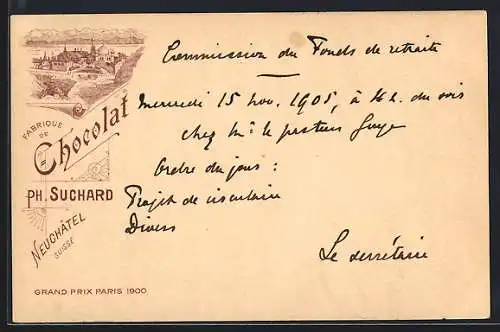 Commission du Fonds de retraite
Mercredi 15 nov. 1905, à 4 h. du soir
chez Mr le pasteur
Ordre du jour :
Projet de circulaire
Divers
Le secrétaire
FABRIQUE
DE
Chocolat
PH. SUCHARD
NEUCHÂTEL
SUISSE
GRAND PRIX PARIS 1900